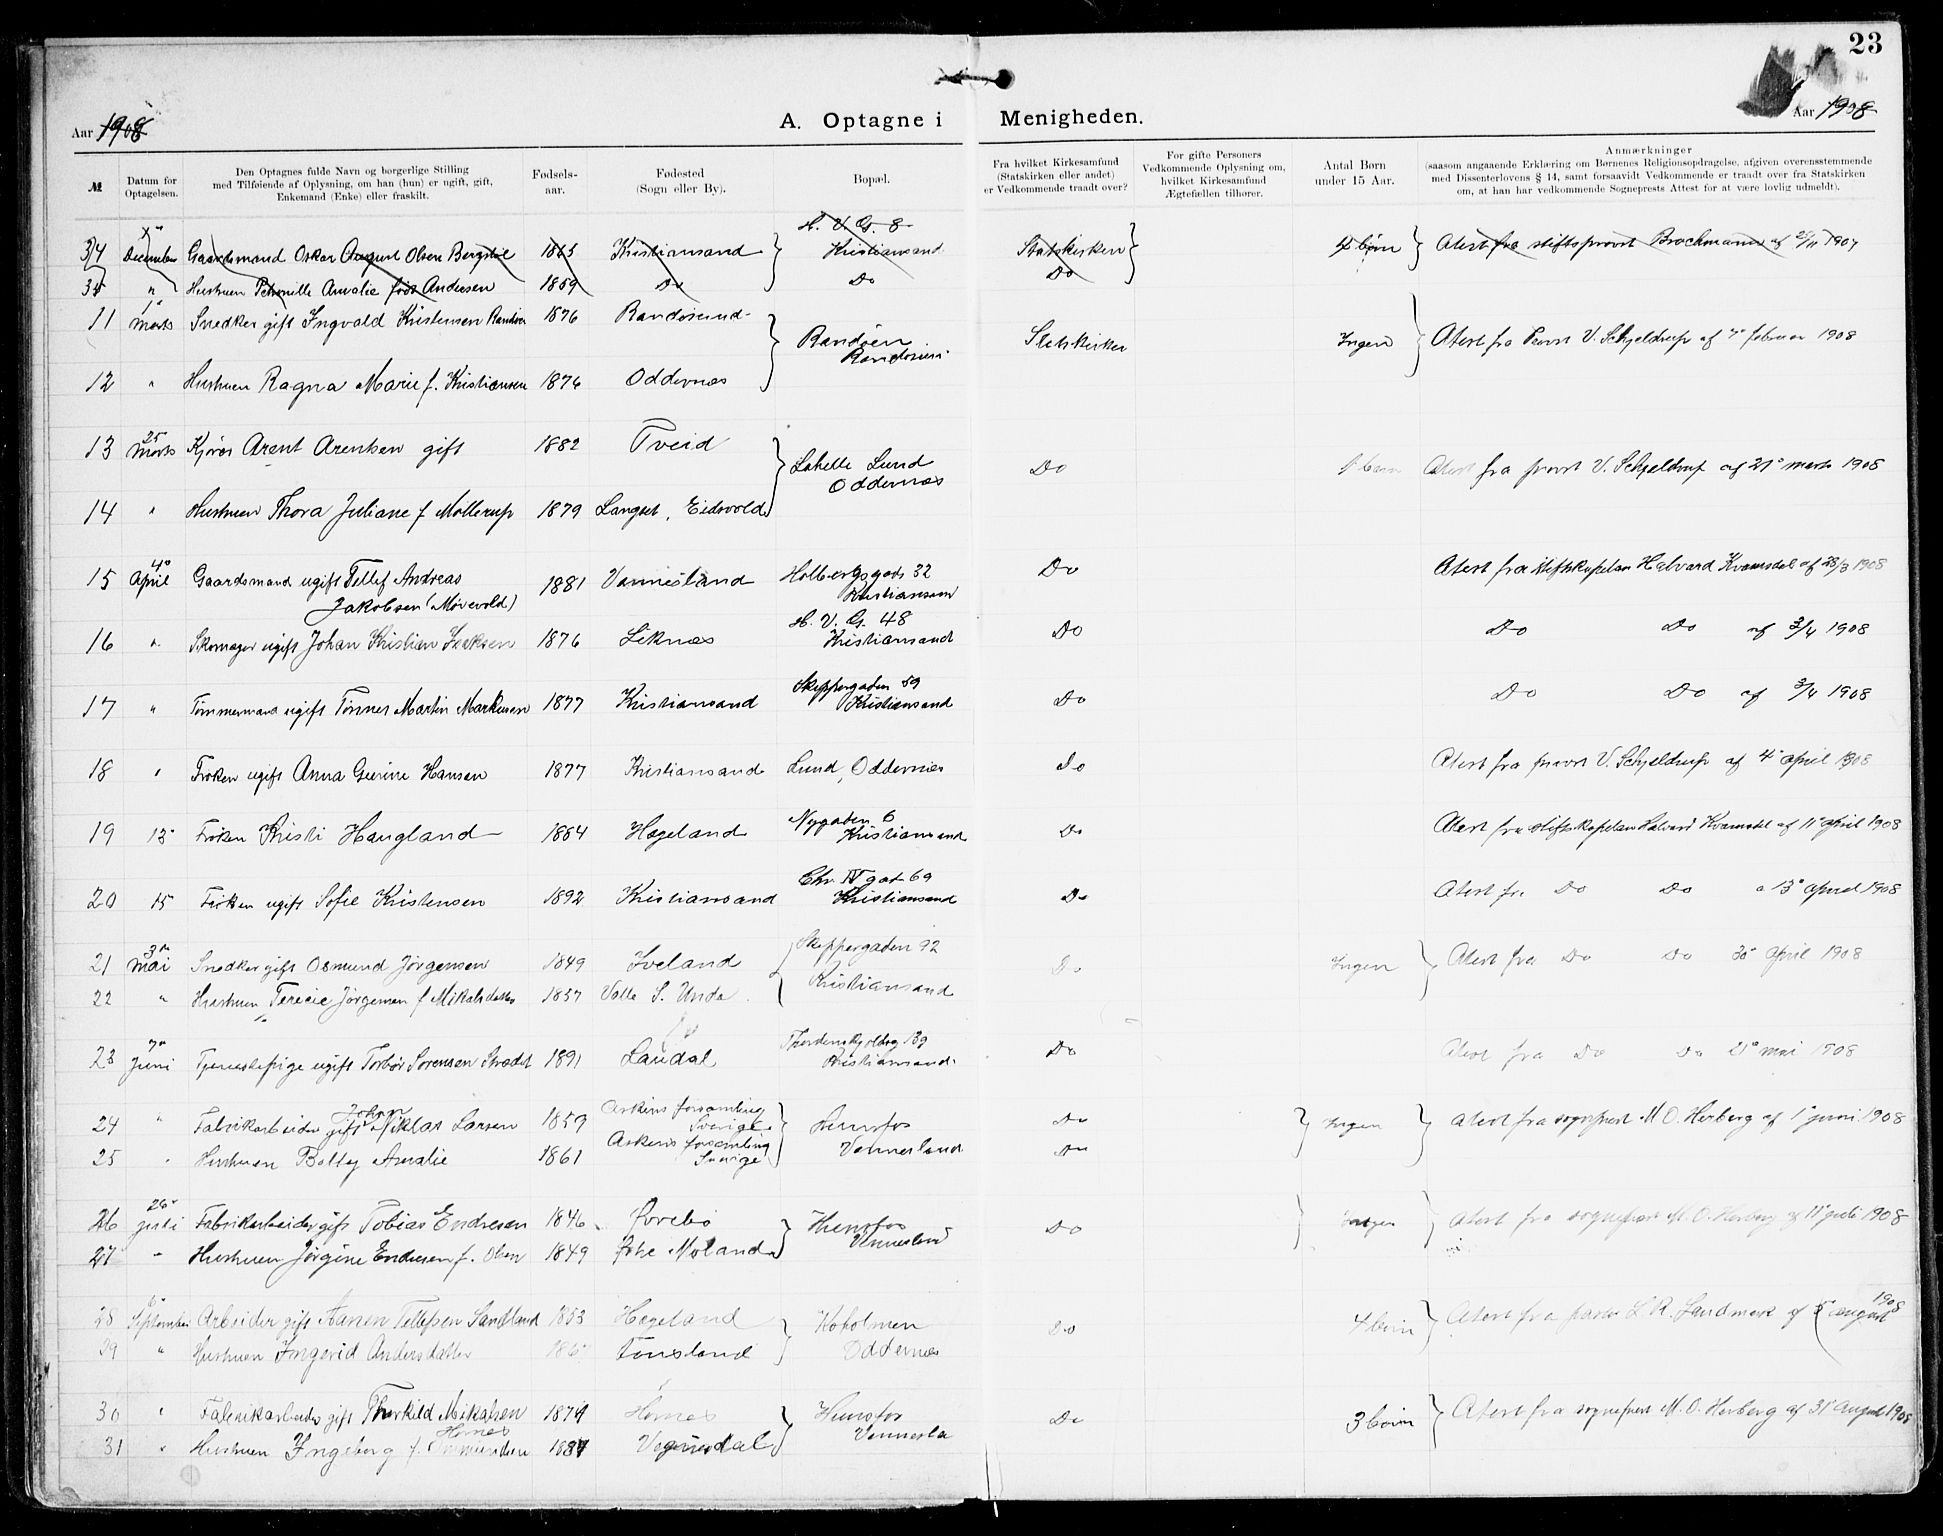 23
Aar 1908
A. Optagne i Menigheden.
Aar 1908
№
Datum for Optagelsen.
Den Optagnes fulde Navn og borgerlige Stilling med Tilføiende af Oplysning, om han (hun) er ugift, gift, Enkemand (Enke) eller fraskilt.
Fødsels-aar.
Fødested (Sogn eller By).
Bopæl.
Fra hvilket Kirkesamfund (Statskirken eller andet) er Vedkommende traadt over?
For gifte Personers Vedkommende Oplysning om, hvilket Kirkesamfund Ægtefællen tilhører.
Antal Børn under 15 Aar.
Anmærkninger (saasom angaaende Erklæring om Børnenes Religionsopdragelse, afgiven overensstemmende med Dissenterlovens § 14, samt forsaavidt Vedkommende er traadt over fra Statskirken om, at han har vedkommende Sogneprests Attest for at være lovlig udmeldt).
34 December Gaardsmand Oskar August Olsen Bergstøl 1863 Kristiansand H. V. G. 8 Kristiansand Statskirken 4 børn Atest fra stiftsprovst Brochmann af 25/11 1907
35 " Hustruen Petronille Amalie født Andersen 1859 Do Do Do
11 1 Marts Snedker gift Ingvald Kristensen Randøen 1876 Randøsund Randøen Randøsun Statskirken Ingen Atest fra Provst V. Schjeldrup af 7 februar 1908
12 " Hustruen Ragna Marie f. Kristiansen 1876 Oddernæs
13 25 Marts Kjører Arent Arentsen gift 1882 Tveid Lahelle Lund Oddernæs Do 1 barn Atest fra provst V. Schjeldrup af 21 marts 1908
14 " Hustruen Thora Juliane f Møllerup 1879 Langset, Eidsvold
15 4 April Gaardsmand ugift Tellef Andreas Jakobsen (Mørevold) 1881 Vannesland Holbergsgade 32 Kristiansand Do Atest fra stiftskapelan Halvard Kvamsdal af 28/3 1908
16 " Skomager ugift Johan Kristian Isaksen 1876 Liknæs H. V. G. 48 Kristiansand Do Do Do af 3/4 1908
17 " Tømmermand ugift Tønnes Martin Markusen 1877 Kristiansand Skippergaden 59 Kristiansand Do Do Do af 3/4 1908
18 " Frøken ugift Anna Gurine Hansen 1877 Kristiansand Lund, Oddernæs Do Atest fra provst V. Schjeldrup af 4 april 1908
19 12 Frøken Kristi Haugland 1884 Hægeland Nygaden 6 Kristiansand Do Atest fra stiftskapelan Halvard Kvamsdal af 11 april 1908
20 15 Frøken ugift Sofie Kristensen 1892 Kristiansand Chr. IV gat 69 Kristiansand Do Atest fra Do Do a 13 april 1908
21 3 Mai Snedker gift Osmund Jørgensen 1849 Iveland Skippergaden 92 Kristiansand Do Ingen Atest fra Do Do 30 April 1908
22 " Hustruen Terecie Jørgensen f Mikalsdatter 1857 Valle S. Unda
23 7 Juni Tjenestepige ugift Torbør Sørensen 1891 Laudal Thordenskjoldsg 139 Kristiansand Do Atest fra Do Do 21 mai 1908
24 " Fabrikarbeider gift Johan Niklas Larsen 1859 Askens forsamling Sverige Hunsfos Vennesland Do Ingen Atest fra sogneprest M. O. Herberg af 1 juni 1908
25 " Hustruen Betty Amalie 1861 Askens forsamling Sverige Do
26 26 juli Fabrikarbeider gift Tobias Endresen 1846 Øvrebø Hunsfos Vennesland Do Ingen Atest fra sogneprest M. O. Herberg af 11 juli 1908
27 " Hustruen Jørgine Endresen f. Olsen 1849 Østre Moland
28 6 September Arbeider gift Aanen Tellefsen Sandland 1853 Hægeland Koholmen Oddernæs Do 4 børn Atest fra pastor L. R. Landmark af 5 august 1908
29 " Hustruen Ingerid Andersdatter Finsland
30 " Fabrikarbeider gift Thorkild Mikalsen 1874 Hornes Hunsfos Vennesla Do 3 børn Atest fra sogneprest M. O. Herberg af 31 August 1908
31 " Hustruen Ingeborg f. Hornes